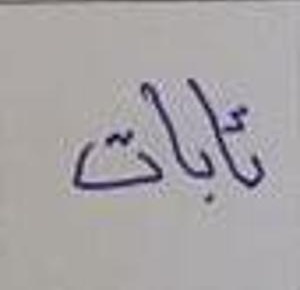 ثابات